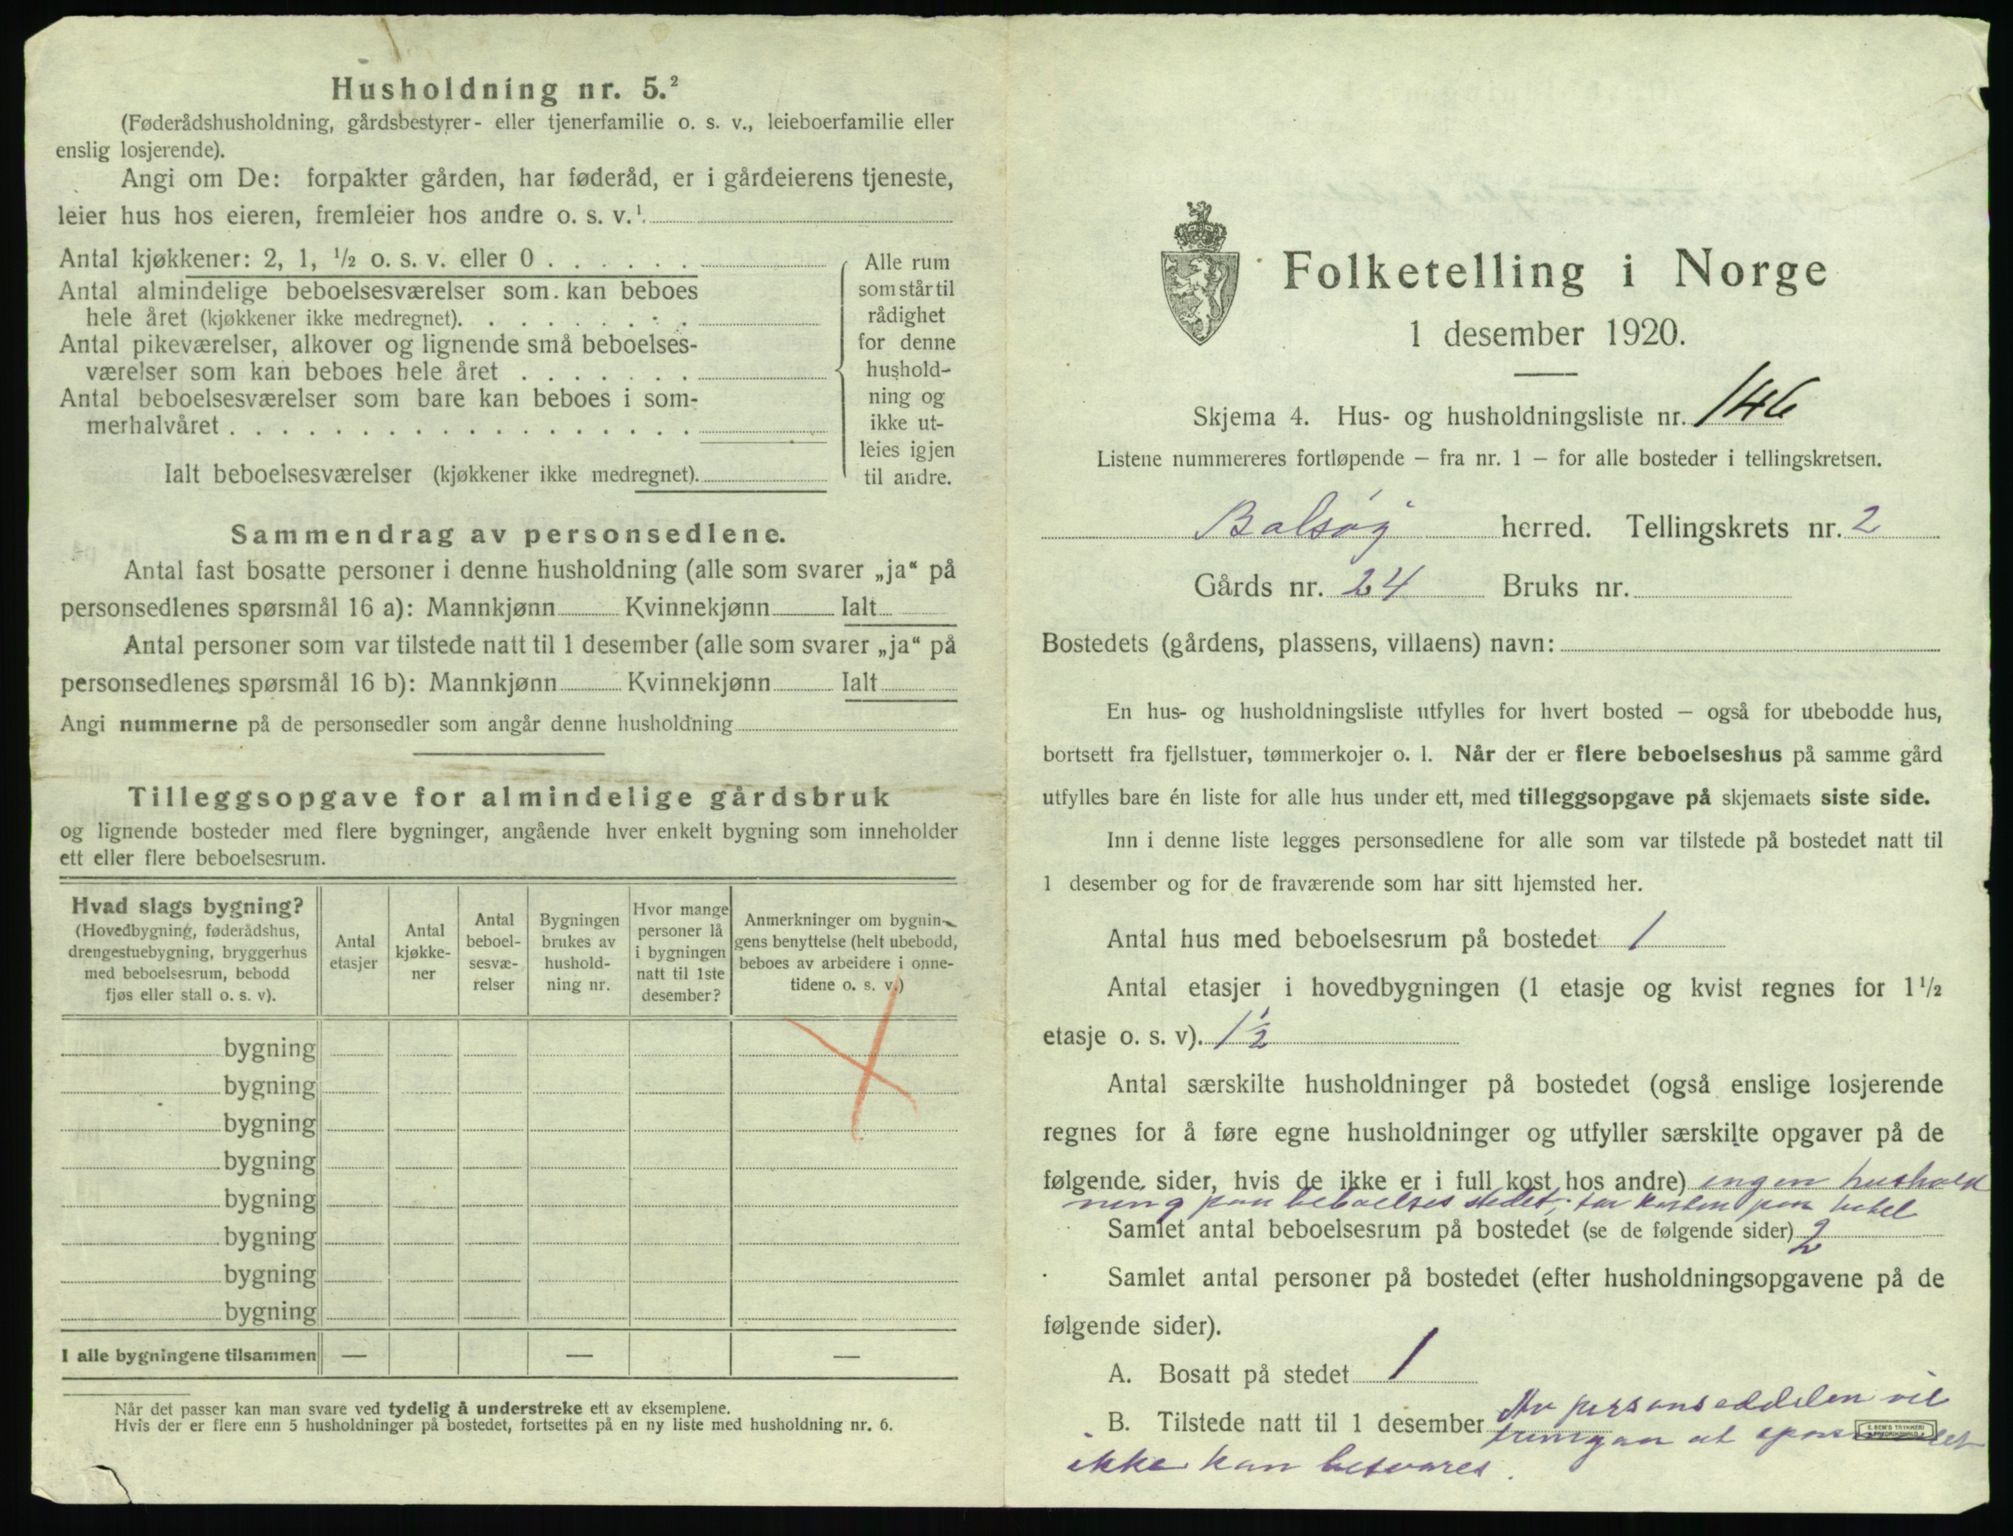 Husholdning nr. 5.²
(Føderådshusholdning, gårdsbestyrer- eller tjenerfamilie o. s. v., leieboerfamilie eller
enslig losjerende).
Angi om De: forpakter gården, har føderåd, er i gårdeierens tjeneste,
leier hus hos eieren, fremleier hos andre o. s. v.¹
Antal kjøkkener: 2, 1, ½ o. s. v. eller 0
Antal almindelige beboelsesværelser som kan beboes
hele året (kjøkkener ikke medregnet).
Antal pikeværelser, alkover og lignende små beboelses-
værelser som kan beboes hele året
Antal beboelsesværelser som bare kan beboes i som-
merhalvåret
Ialt beboelsesværelser (kjøkkener ikke medregnet)
Alle rum
som står til
rådighet
for denne
hushold-
ning og
ikke ut-
leies igjen
til andre.
Sammendrag av personsedlene.
Antal fast bosatte personer i denne husholdning (alle som svarer „ja“ på
personsedlenes spørsmål 16 a): Mannkjønn Kvinnekjønn Ialt
Antal personer som var tilstede natt til 1 desember (alle som svarer „ja“ på
personsedlenes spørsmål 16 b): Mannkjønn Kvinnekjønn Ialt
Angi nummerne på de personsedler som angår denne husholdning
Tilleggsopgave for almindelige gårdsbruk
og lignende bosteder med flere bygninger, angående hver enkelt bygning som inneholder
ett eller flere beboelsesrum.
Hvad slags bygning?
(Hovedbygning, føderådshus,
drengestuebygning, bryggerhus
med beboelsesrum, bebodd
fjøs eller stall o. s. v).
Antal
etasjer
Antal
kjøkke-
ner
Antal
beboel-
sesvæ-
relser
Bygningen
brukes av
hushold-
ning nr.
Hvor mange
personer lå
i bygningen
natt til 1ste
desember?
Anmerkninger om bygnin-
gens benyttelse (helt ubebodd,
beboes av arbeidere i onne-
tidene o. s. v.)
bygning
bygning
bygning
bygning
bygning
bygning
bygning
bygning
I alle bygningene tilsammen — — —
Når det passer kan man svare ved tydelig å understreke ett av eksemplene.
Hvis der er flere enn 5 husholdninger på bostedet, fortsettes på en ny liste med husholdning nr. 6.
Folketelling i Norge
1 desember 1920.
Skjema 4. Hus- og husholdningsliste nr. 146
Listene nummereres fortløpende — fra nr. 1 — for alle bosteder i tellingskretsen.
Bolsøy herred. Tellingskrets nr. 2
Gårds nr. 24 Bruks nr.
Bostedets (gårdens, plassens, villaens) navn:
En hus- og husholdningsliste utfylles for hvert bosted — også for ubebodde hus,
bortsett fra fjellstuer, tømmerkojer o. l. Når der er flere beboelseshus på samme gård
utfylles bare én liste for alle hus under ett, med tilleggsopgave på skjemaets siste side.
Inn i denne liste legges personsedlene for alle som var tilstede på bostedet natt til
1 desember og for de fraværende som har sitt hjemsted her.
Antal hus med beboelsesrum på bostedet 1
Antal etasjer i hovedbygningen (1 etasje og kvist regnes for 1½
etasje o. s. v). 1½
Antal særskilte husholdninger på bostedet (også enslige losjerende
regnes for å føre egne husholdninger og utfyller særskilte opgaver på de
følgende sider, hvis de ikke er i full kost hos andre) ingen hushold
ning paa beboelsesstedet, tar kosten paa hotel
Samlet antal beboelsesrum på bostedet (se de følgende sider) 2
Samlet antal personer på bostedet (efter husholdningsopgavene på de
følgende sider).
A. Bosatt på stedet 1
B. Tilstede natt til 1 desember Av personseddelen vil
fremgaa at
ikke kan besvares.